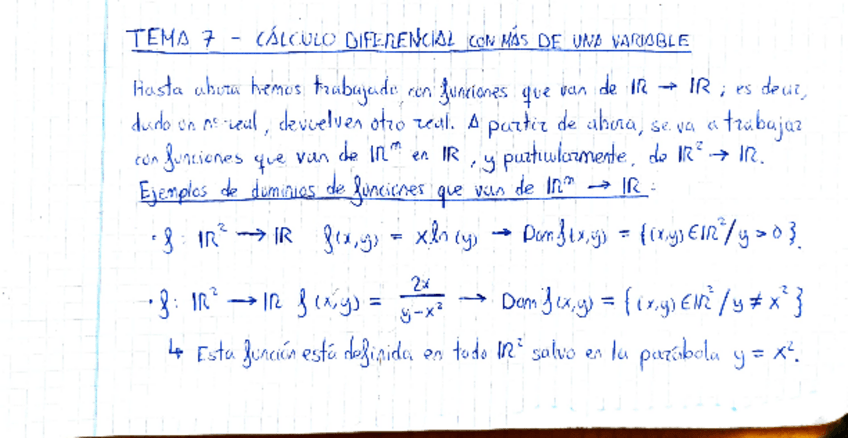 TEMA 7 - CÁLCULO DIFERENCIAL CON MÁS DE UNA VARIABLE
Hasta ahora hemos trabajado con funciones que van de ℝ → ℝ; es decir,
dado un nº real, devuelven otro real. A partir de ahora, se va a trabajar
con funciones que van de ℝᵐ en ℝ, y particularmente, de ℝ² → ℝ.
Ejemplos de dominios de funciones que van de ℝᵐ → ℝ:
· f: ℝ² → ℝ f(x,y) = x ln(y) → Dom f(x,y) = {(x,y) ∈ ℝ² / y > 0}.
· f: ℝ² → ℝ f(x,y) = 2x/(y-x²) → Dom f(x,y) = {(x,y) ∈ ℝ² / y ≠ x²}
↳ Esta función está definida en todo ℝ² salvo en la parábola y = x².